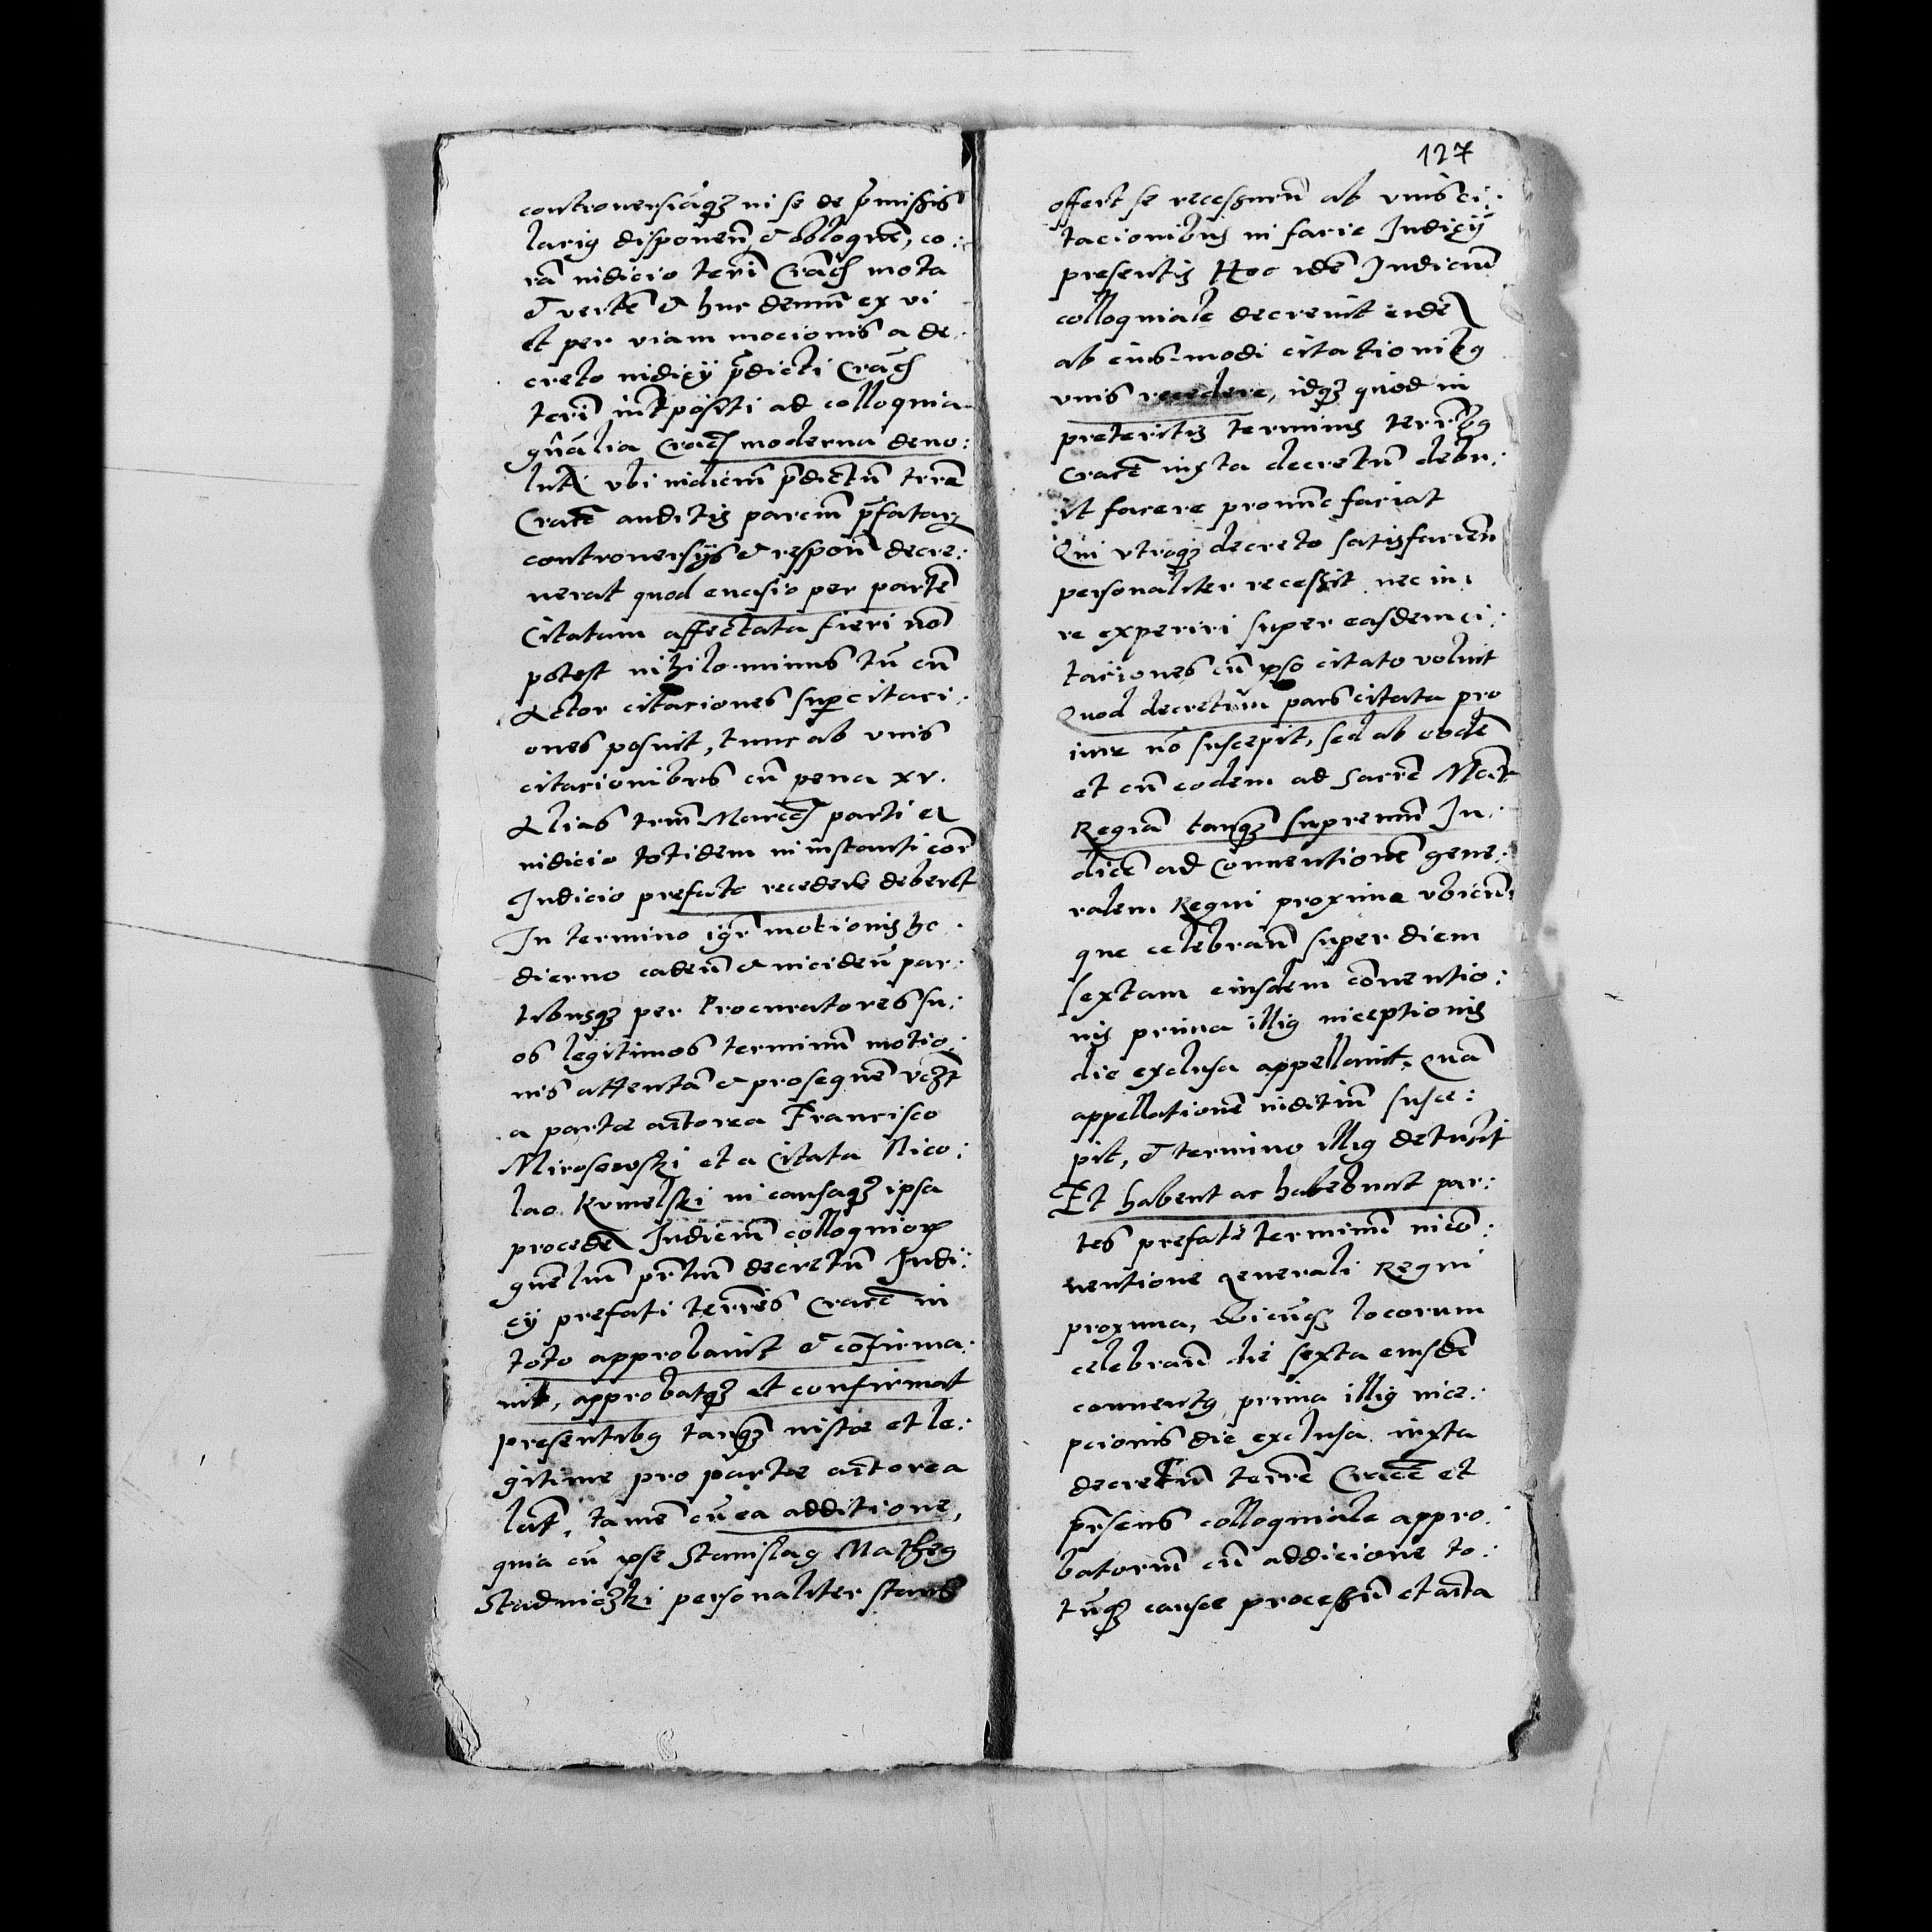 controuersiaq3 in se de p̃missis
larig disponeñ & obloqueñ, co:
rã iudicio terrĩ Crac̃ mota
& verteñ & huc demũ ex vi
et per viam mocionis a de
creto iudicÿ p̃dicti Crac̃
terrĩ int̃positi ad colloquia
gñalia Crac̃ moderna deuo:
lut̃ vbi iudiciũ p̃dictũ terrẽ
Cracẽ auditis parciũ p̃fatar
controuersÿs & respoñ decre:
uerat quod euasio per partẽ
Citatam affectata fieri nõ
potest nihilominus tñ cũ
Actor citaciones sup citaci:
ones posuit, tunc ab vnis
citacionibus cũ pena xv.
Alias trĩũ Marcaȓ parti et
iudicio totidem in instanti corã
Iudicio prefato recedere deberet
In termino igr̃ motionis ho
dierno cadeñ & incideñ par:
tibusq3 per Procuratores su:
os legitimos terminũ motio:
nis attentañ & prosequeñ vc3t
a parte actorea Francisco
Mirosowski et a Citata Nico:
lao Kumelski in causaq3 ipsa
procedeñ Iudiciũ colloquior
gñeliũ pñtiũ decretũ Iudi:
cÿ prefati terrẽs Cracẽ in
toto approbauit & confirma:
uit, approbatq3 et confirmat
presentibus tanq3 iuste et le:
gitime pro parte actorea
lat̃, tamẽ cũ ea additione,
quia cũ ipse Stanislaus Matheus
Stadniczki personaliter stans
127
offert se recessurũ ab vnis ci:
tacionibus in facie Iudicÿ
presentis Hoc idẽ Iudiciũ
colloquiale decreuit eideñ
ab eiusmodi citationibus
vnis recedere, idq3 quod in
preteritis terminis terrĩbus
Cracẽ iuxta decretũ debu:
it facere pronunc faciat
Qui vtroq3 decreto satisfacieñ
personaliter recessit nec iu:
re experiri super easdem ci:
taciones cũ ipso citato voluit
Quod decretum pars citata pro
iure nõ suscepit, sed ab eodẽ
et cũ eodem ad Sacrẽ Maĩt
Regiã tanq3 supremũ Iu:
dicẽ ad Conuentionẽ gene:
ralem Regni proxime vbicũ:
que celebrañ super diem
sextam eiusdem cõuentio:
nis prima illius inceptionis
die exclusa appellauit, Quã
appellationẽ iuditiũ susce:
pit, & termino illius detulit
Et habent ac habebunt par:
tes prefate terminũ in cõ:
uentione generali Regni
proxima, vbicũq3 locorum
celebrañ die sexta eiusdẽ
conuentus prima illius ince:
pcionis die exclusa iuxta
decretũ terrẽ Cracẽ et
pr̃sens colloquiale appro:
batoriũ cũ addicione to:
tũq3 cause processũ et acta